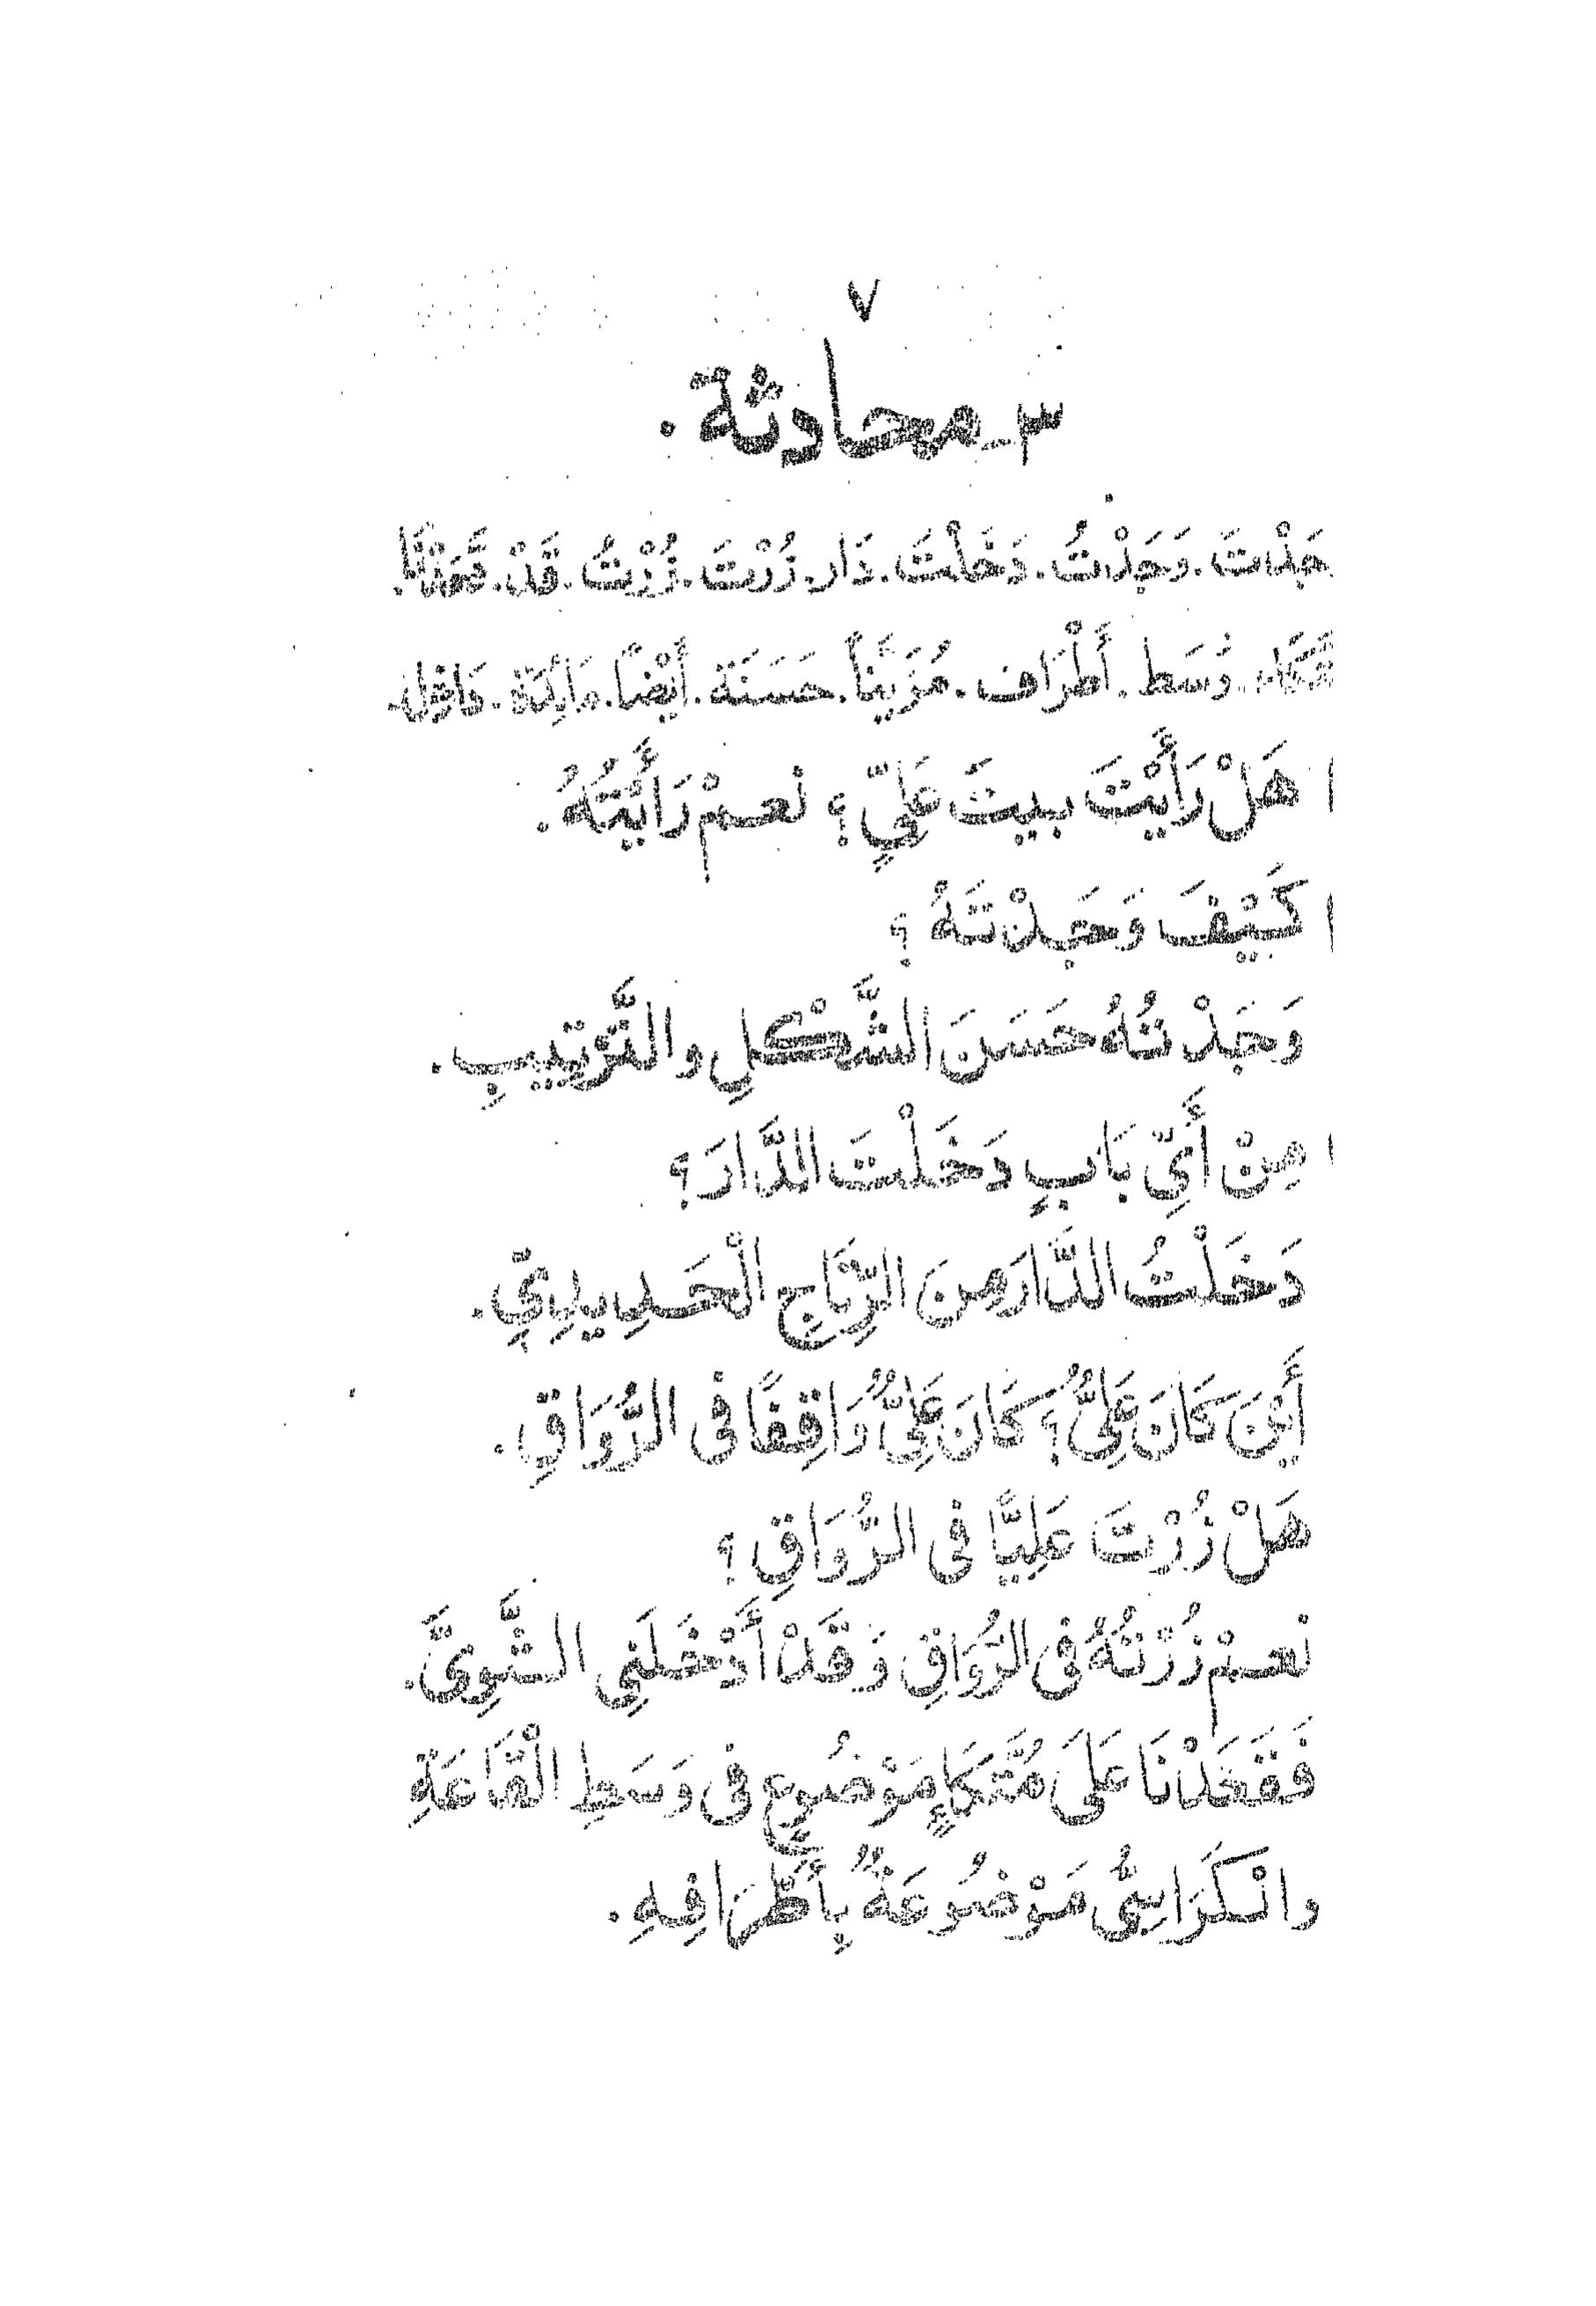 ٧
٣ـ محادثة .
جَدْتَ . وَجَدْتُ . دَخَلْتَ . دَار . زُرْتَ . زُرْتُ . قَدْ .
وَسَط . أَطْرَاف . مُزَيَّناً . حَسَنَة . أَيْضاً . مَائِدَة .
هَلْ رَأَيْتَ بيتَ عَلِيٍّ ؟ نعمْ رَأَيْتُهُ .
كَيْفَ وَجَدْتَهُ ؟
وَجَدْتُهُ حَسَنَ الشَّكْلِ والتَّرْتِيبِ .
مِنْ أَيِّ بَابٍ دَخَلْتَ الدَّارَ ؟
دَخَلْتُ الدَّارَ مِنَ الرِّتَاجِ الْحَدِيدِيِّ .
أَيْنَ كَانَ عَلِيٌّ ؟ كَانَ عَلِيٌّ وَاقِفًا فى الرُّوَاقِ .
هَلْ زُرْتَ عَلِيًّا فى الرُّوَاقِ ؟
نعمْ زُرْتُهُ فى الرُّوَاقِ وَقَدْ أَدْخَلَنِي الثَّوِىَّ .
فَقَعَدْنَا عَلَى مُتَّكَاءٍ مَوْضُوعٍ فى وَسَطِ الْقَاعَةِ
والْكَرَاسِىُّ مَوْضُوعَةٌ بِأَطْرَافِهِ .